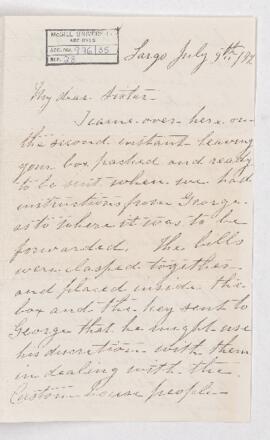 McGILL UNIVERSITY
ARCHIVES
ACC. NO. 976/35
REF. 23
Largo July 9th/92
My dear Sister
I came over here on
the second instant leaving
your box packed and ready
to be sent when we had
instructions from George
as to where it was to be
forwarded. The bills
were clasped together
and placed inside the
box and the key sent to
George that he might use
his discretion with them
in dealing with the
Custom house people